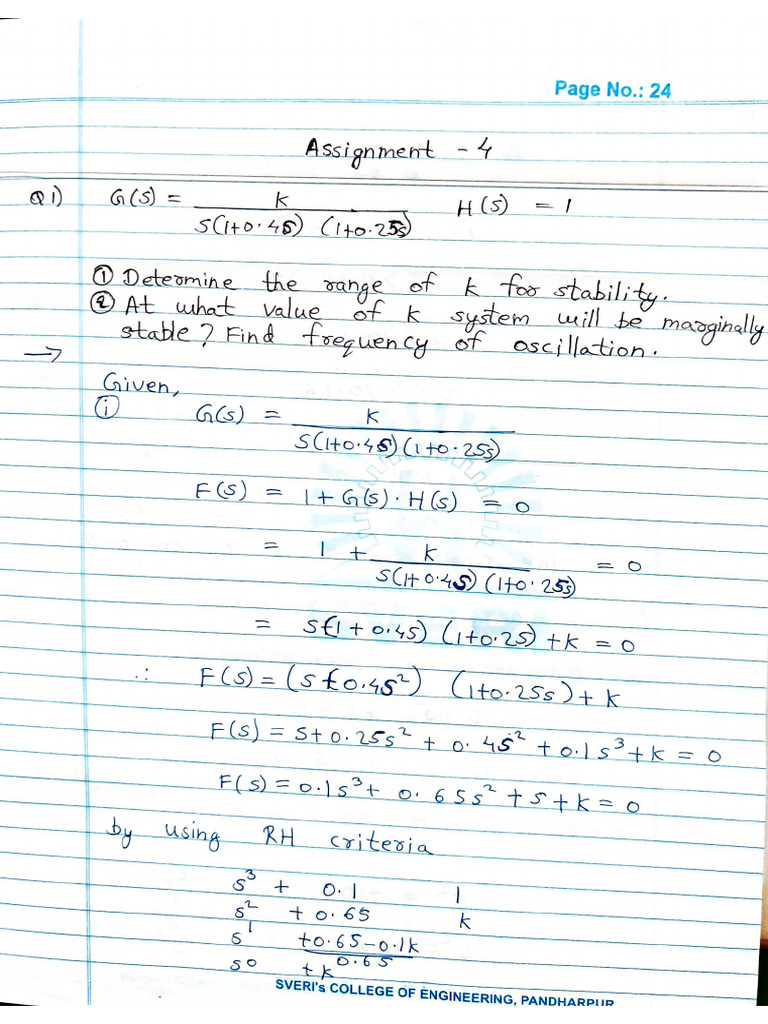 Page No.: 24
Assignment - 4
Q1) G(s) = k / s(1+0.4s) (1+0.25s) H(s) = 1
① Determine the range of k for stability.
② At what value of k system will be marginally
stable? Find frequency of oscillation.
→
Given,
① G(s) = k / s(1+0.4s)(1+0.25s)
F(s) = 1 + G(s) · H(s) = 0
= 1 + k / s(1+0.4s) (1+0.25s) = 0
= s(1+0.4s) (1+0.25) + k = 0
∴ F(s) = (s+0.4s²) (1+0.25s) + k
F(s) = s+0.25s² + 0.4s² + 0.1s³ + k = 0
F(s) = 0.1s³ + 0.65s² + s + k = 0
by using RH criteria
s³ + 0.1 1
s² + 0.65 k
s¹ +0.65-0.1k / 0.65
s0 + k
SVERI's COLLEGE OF ENGINEERING, PANDHARPUR